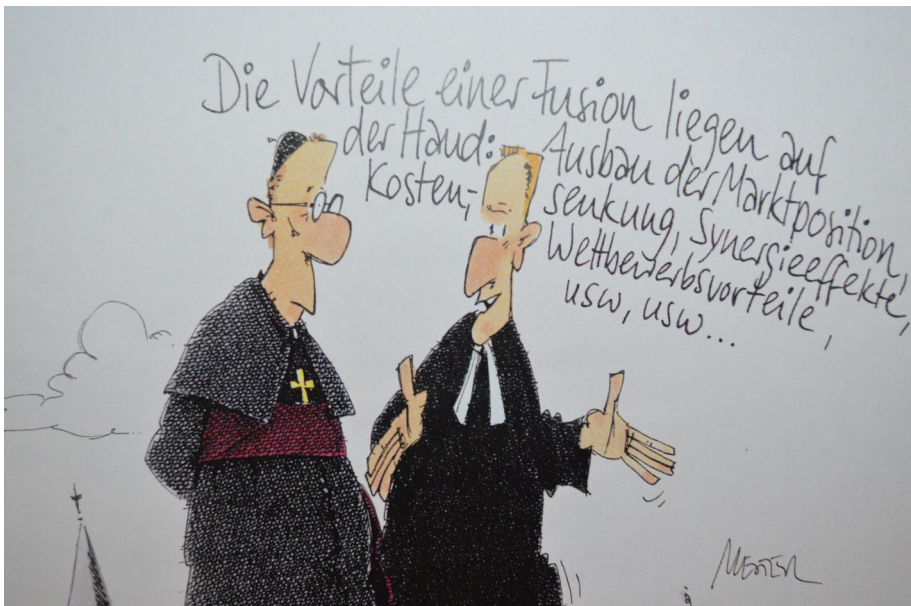 Die Vorteile einer Fusion liegen auf
der Hand: Ausbau der Marktposition,
Kosten,- senkung, Synergieeffekte,
Wettbewerbsvorteile,
usw, usw...
MESTER